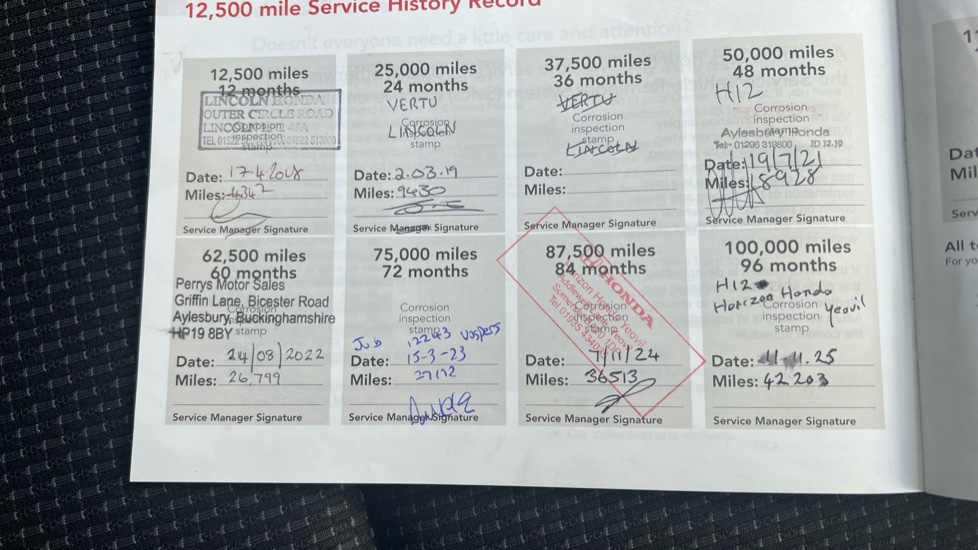 12,500 mile Service History Record
12,500 miles
12 months
LINCOLN HONDA
OUTER CIRCLE ROAD
LINCOLN
Corrosion
inspection
stamp
Date: 17-4-2018
Miles: 4347
Service Manager Signature
25,000 miles
24 months
VERTU
Corrosion
LINCOLN
inspection
stamp
Date: 2.03.19
Miles: 9430
Service Manager Signature
37,500 miles
36 months
VERTU
Corrosion
inspection
stamp
LINCOLN
Date:
Miles:
Service Manager Signature
50,000 miles
48 months
H12
Corrosion
inspection
stamp
Aylesbury Honda
Date: 19/7/21
Miles: 18928
Service Manager Signature
62,500 miles
60 months
Perrys Motor Sales
Griffin Lane, Bicester Road
Corrosion
Aylesbury, Buckinghamshire
HP19 8BY stamp
Date: 24/08/2022
Miles: 26,799
Service Manager Signature
75,000 miles
72 months
Corrosion
inspection
stamp
Job 12243 Vospers
Date: 15-3-23
Miles: 27172
Service Manager Signature
87,500 miles
84 months
HONDA
Horizon Honda Yeovil
Corrosion
inspection
stamp
Date: 7/11/24
Miles: 36513
Service Manager Signature
100,000 miles
96 months
H12
Horizon Honda
Yeovil
Corrosion
inspection
stamp
Date: 11.11.25
Miles: 42203
Service Manager Signature
11
Dat
Mil
Serv
All t
For yo